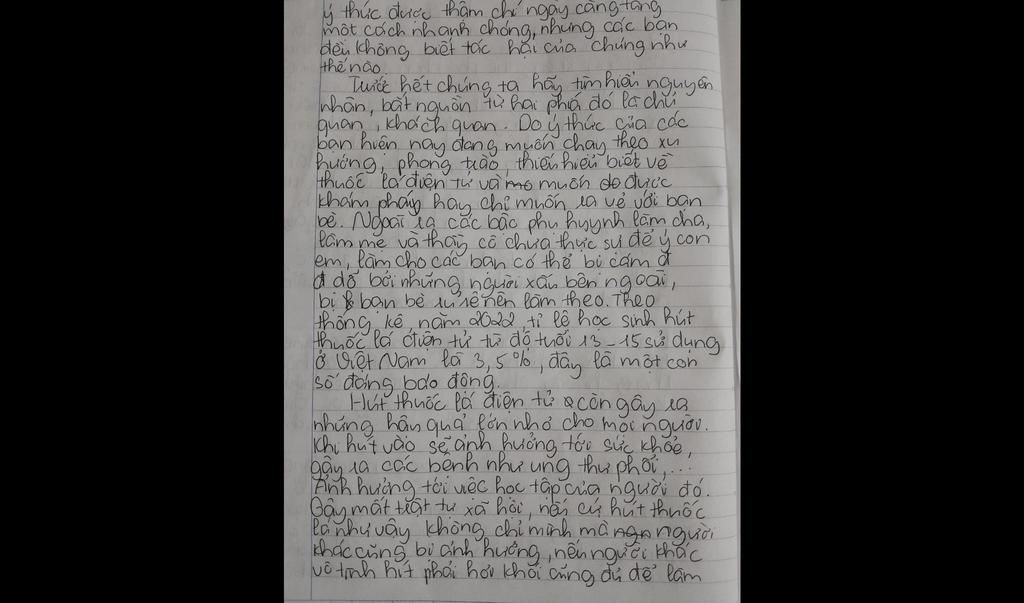 ý thức được thậm chí ngày càng tăng
một cách nhanh chóng, nhưng các bạn
đều không biết tác hại của chúng như
thế nào.
Trước hết chúng ta hãy tìm hiểu nguyên
nhân, bắt nguồn từ hai phía đó là chủ
quan, khách quan. Do ý thức của các
bạn hiện nay đang muốn chạy theo xu
hướng, phong trào, thiếu hiểu biết về
thuốc lá điện tử và muốn được
khám phá hay chỉ muốn ra vẻ với bạn
bè. Ngoài ra các bậc phụ huynh làm cha,
làm mẹ và thầy cô chưa thực sự để ý con
em, làm cho các bạn có thể bị cám
dỗ bởi những người xấu bên ngoài,
bị bạn bè rủ rê nên làm theo. Theo
thống kê năm 2022, tỉ lệ học sinh hút
thuốc lá điện tử từ độ tuổi 13-15 sử dụng
ở Việt Nam là 3,5%, đây là một con
số đáng báo động.
Hút thuốc lá điện tử còn gây ra
những hậu quả lớn nhỏ cho mọi người.
Khi hút vào sẽ ảnh hưởng tới sức khỏe,
gây ra các bệnh như ung thư phổi,...
Ảnh hưởng tới việc học tập của người đó.
Gây mất trật tự xã hội, nếu cứ hút thuốc
lá như vậy không chỉ mình mà người
khác cũng bị ảnh hưởng, nếu người khác
vô tình hít phải hơi khói cũng đủ để làm